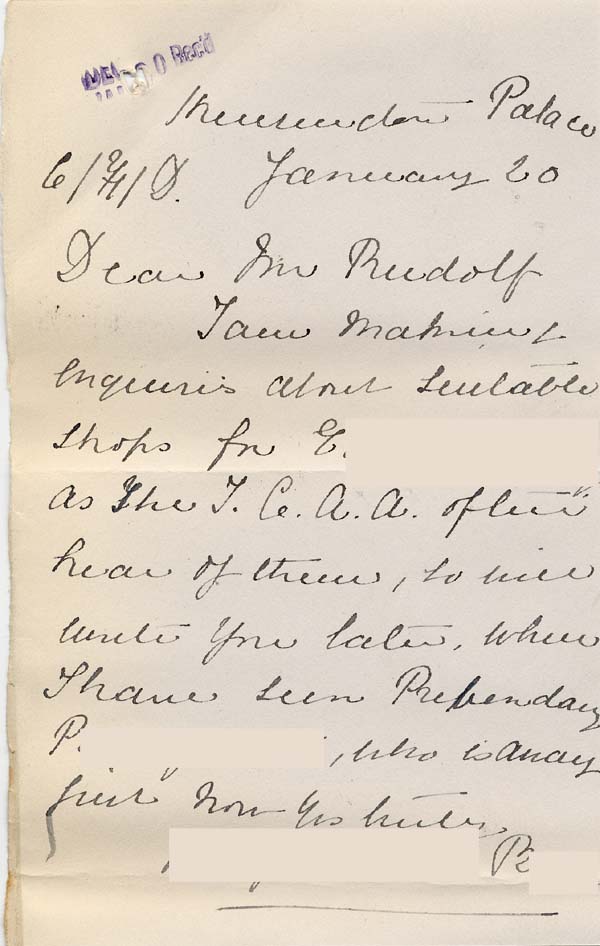 Rec'd
Kensington Palace
January 20
Dear Mr Rudolf
I am making
enquiries about suitable
shops for E.
as the T. C. A. A. often
hear of them, so will
write you later, when
I have seen Prebendary
P. , who is away
just now Yrs truly